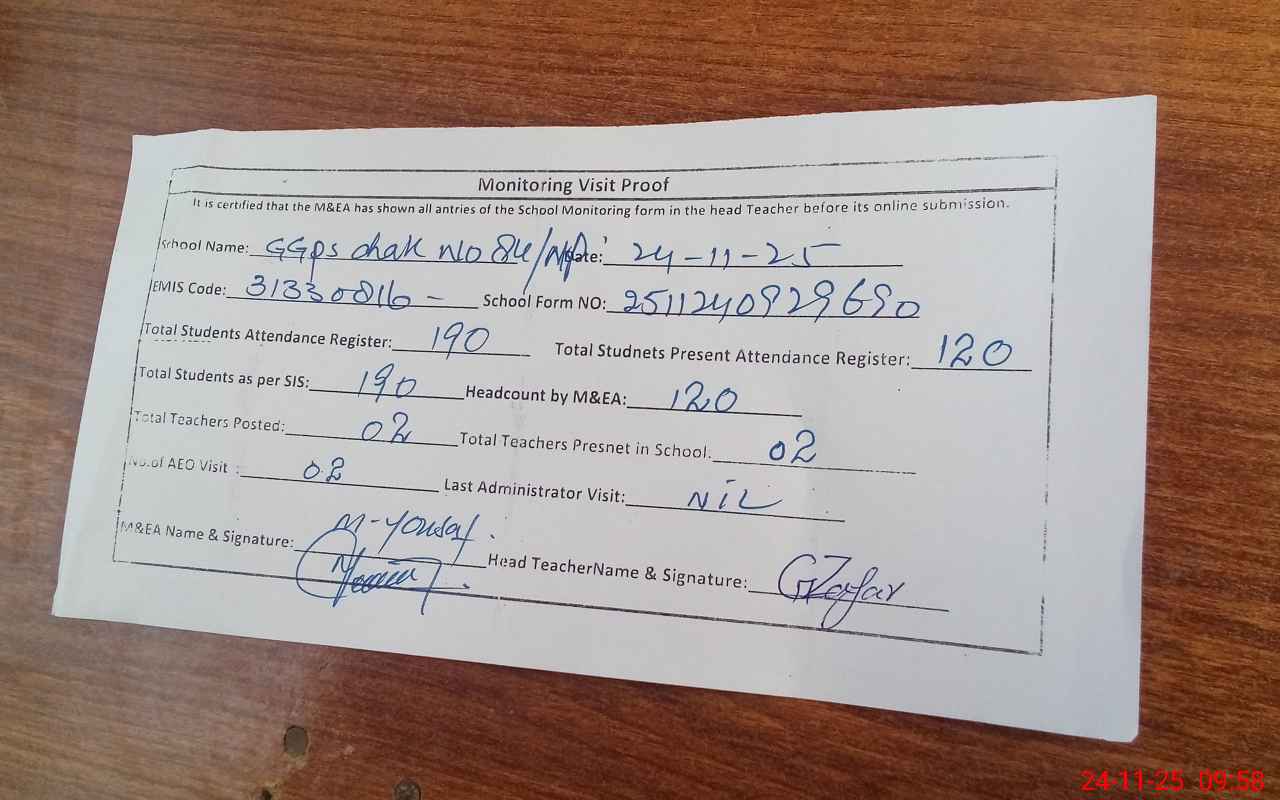 Monitoring Visit Proof
It is certified that the M&EA has shown all antries of the School Monitoring form in the head Teacher before its online submission.
School Name: GGps chak No 84/ Date: 24-11-25
EMIS Code: 31330816 - School Form NO: 2511240929690
Total Students Attendance Register: 190 Total Studnets Present Attendance Register: 120
Total Students as per SIS: 190 Headcount by M&EA: 120
Total Teachers Posted: 02 Total Teachers Presnet in School: 02
No.of AEO Visit : 02 Last Administrator Visit: NiL
M&EA Name & Signature: M-Yousaf. Head TeacherName & Signature: GZafar
24-11-25 09:58